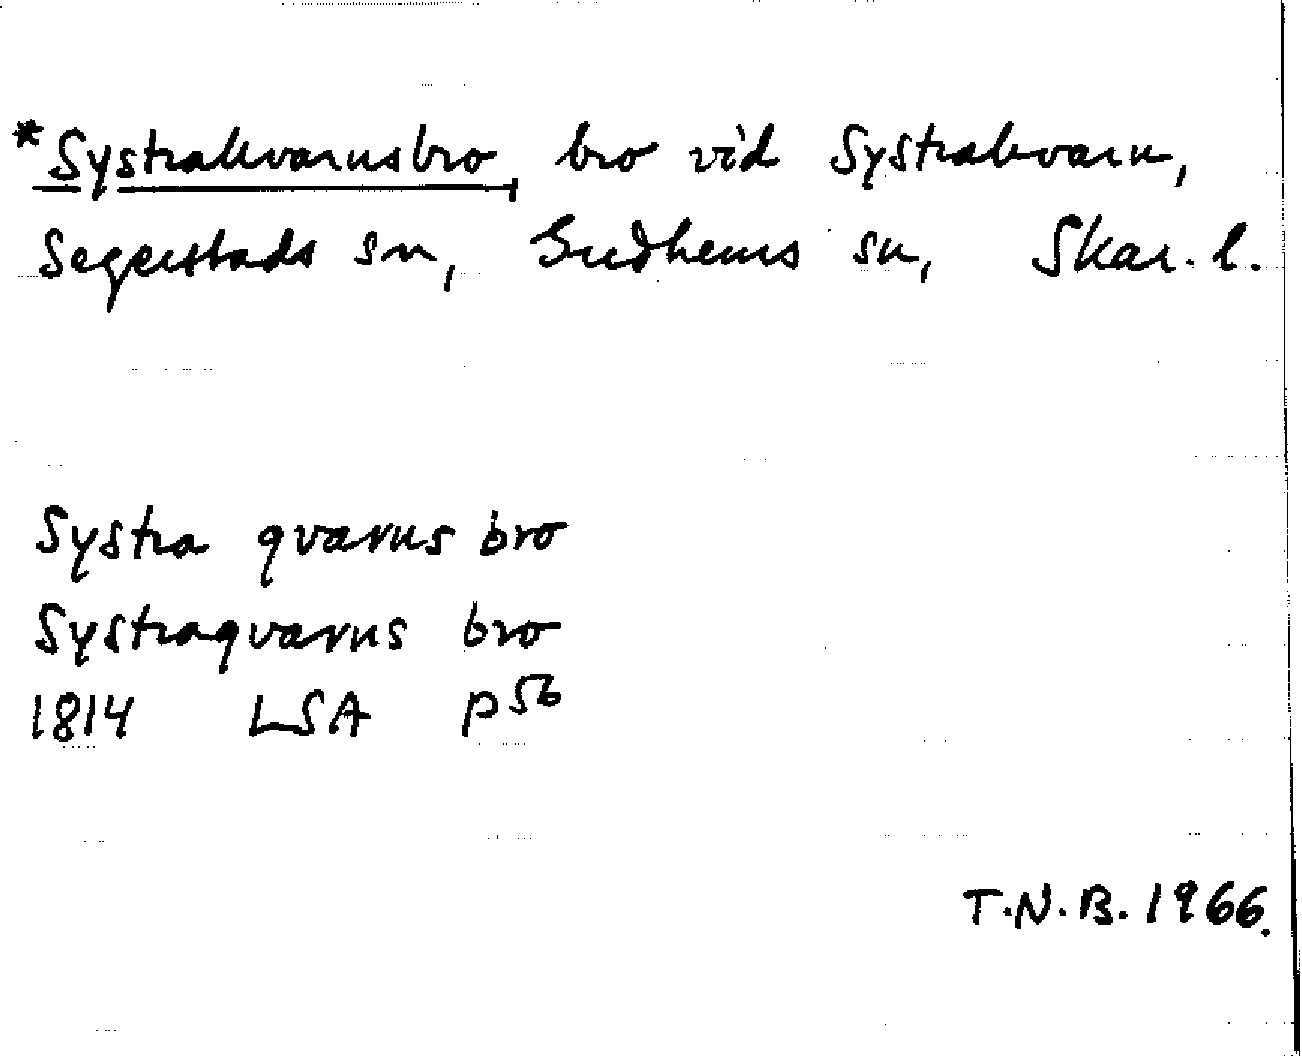 *Systrakvarnsbro, bro vid Systrakvarn,
Segerstads sn, Gudhems sn, Skar. l.
Systra qvarns bro
Systraqvarns bro
1814 LSA P56
T.N.B. 1966.